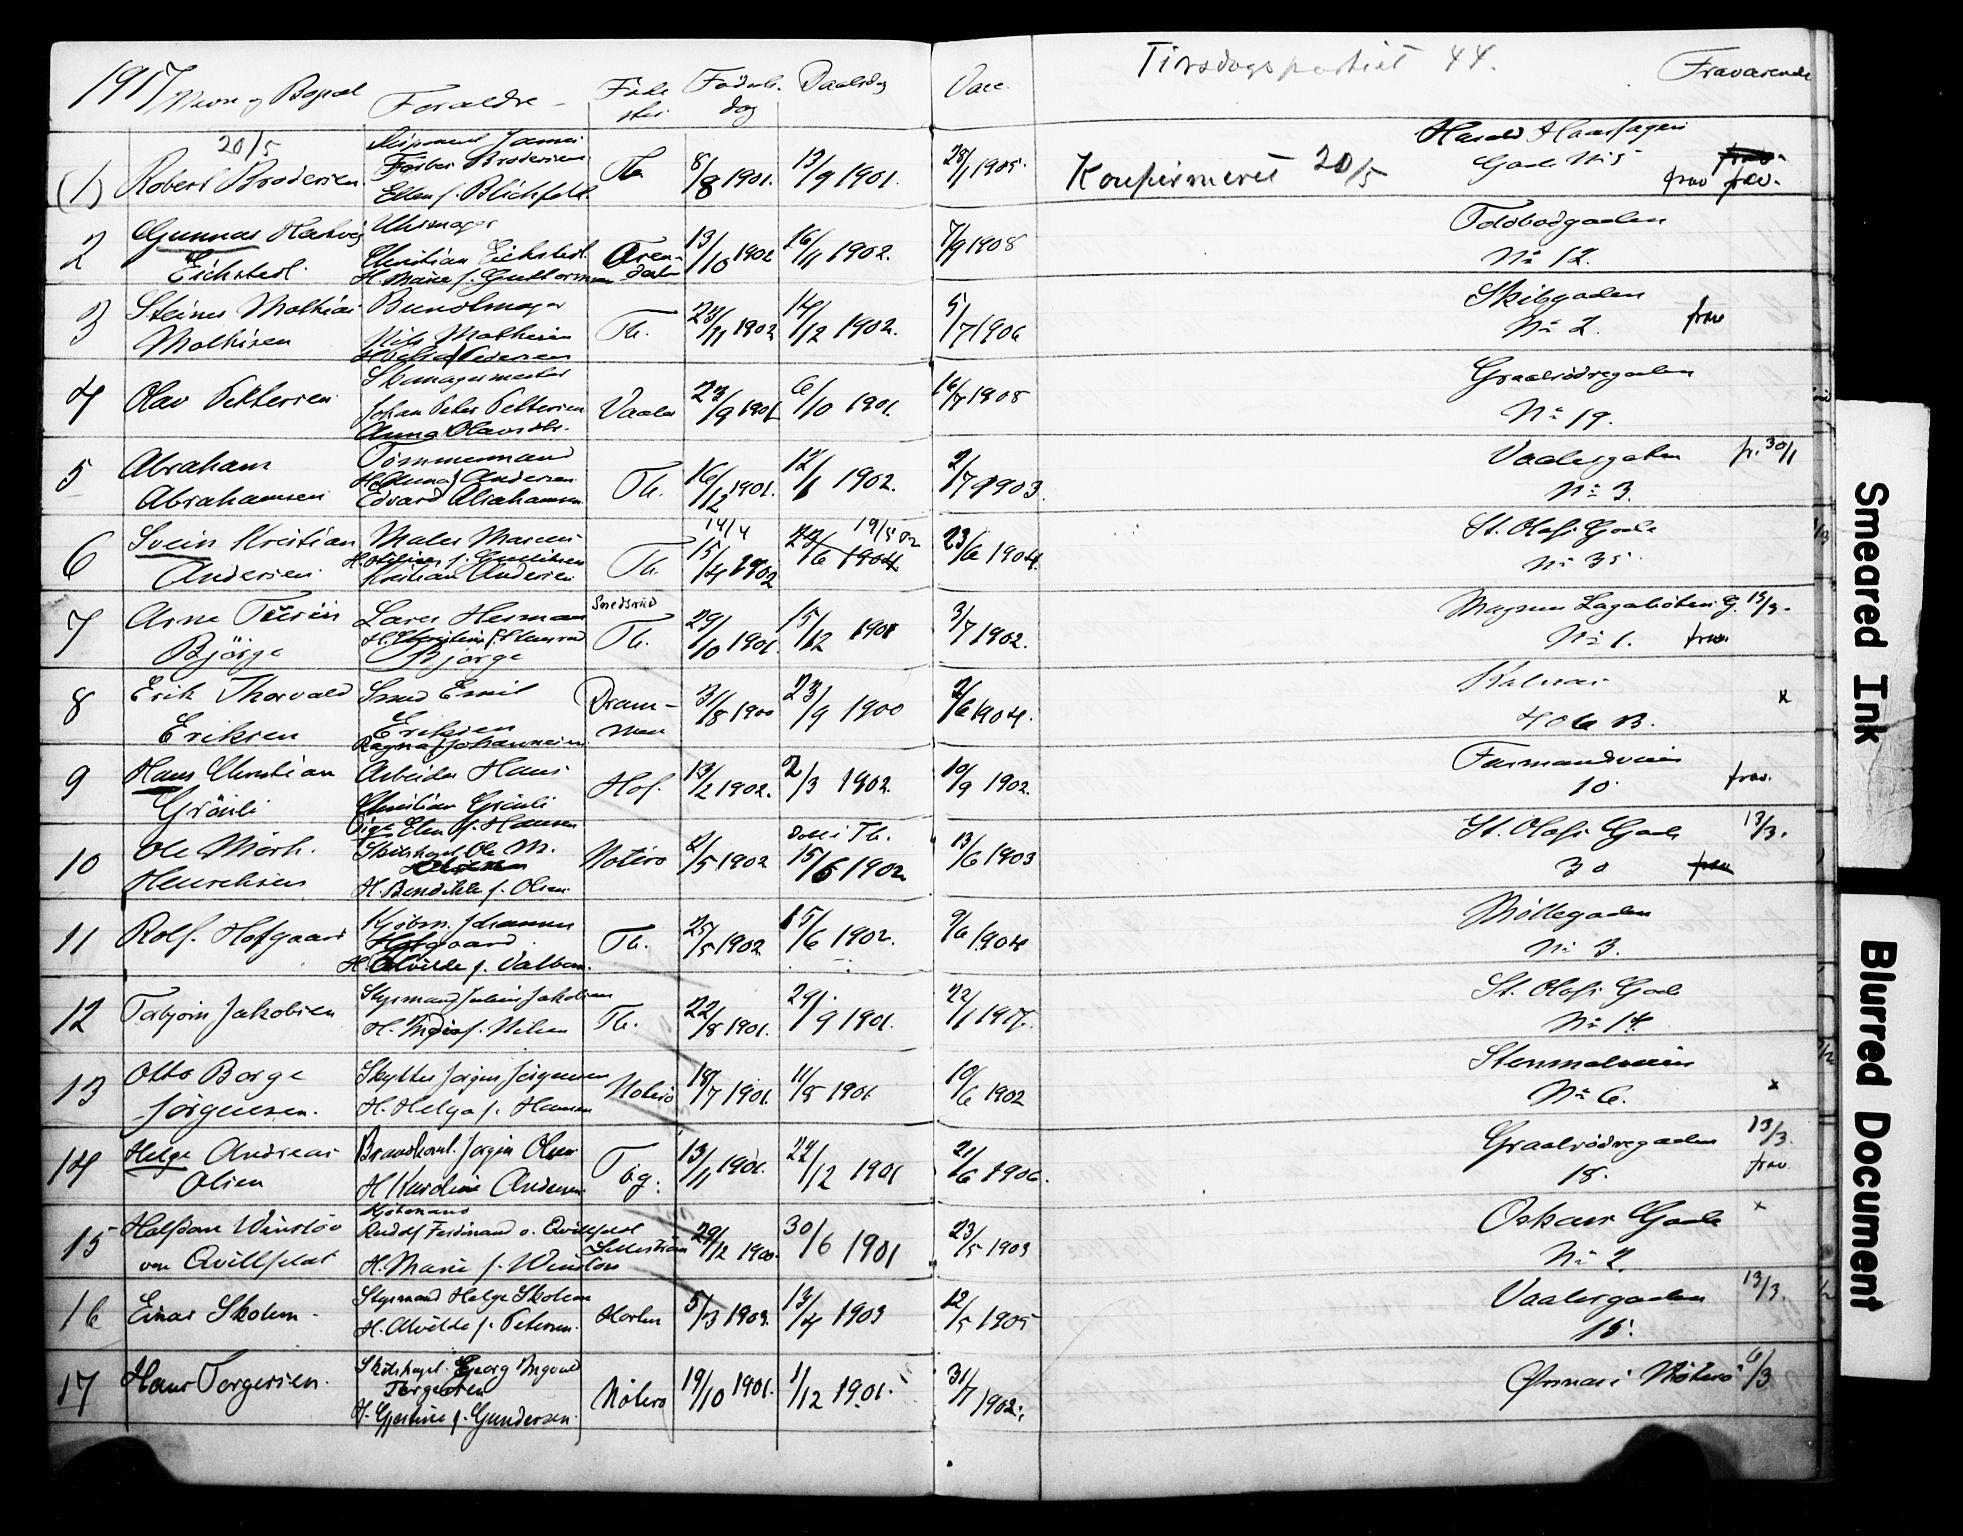 1917 Navn og Bopæl Forældre Føde sted Fødsels dag Daabsdag Vacc. Tirsdagspartiet 44. Fraværende
20/5
(1) Robert Brodersen
Ellen f. Blichfeldt
Th. 8/8 1901. 13/9 1901. 28/1 1905. Konfirmeret 20/5
Harald Haarfagers
Gade No 5 frav frav.
2 Gunnar Hartvig
Eickstedt.
Uhrmager
Christian Eickstedt.
H. Marie f. Guttormsen
Aren-
dal
13/10 1902 16/11 1902. 7/9 1908
Toldbodgaden
No 12.
3 Steinar Mathias
Mathisen
Buntmager
Nils Mathisen
Th. 23/11 1902 14/12 1902. 5/7 1906
Skibgaden
No 2. frav
4 Olav Pettersen
Skomagermester
Johan Peter Pettersen
Anna Olavsdtr.
Vaale 23/9 1901 6/10 1901. 16/7 1908
Graabrødregaden
No 19.
5 Abraham
Abrahamsen
Tømmermand
H. Anna f. Andersen
Edvard Abrahamsen
Th. 16/12 1901. 12/1 1902. 2/7 1903.
Vaalergaten
No 3. fr. 30/1
6 Svein Kristian
Andersen
Maler Marcus
Kristian Andersen
Th. 14/4
15/4 1902 19/5 02
23/6 1904 23/6 1904.
St. Olafs Gade
No 35
7 Arne
Bjørge
Lars Herman
Bjørge
Th. 29/10 1901 15/12 1901 3/7 1902.
Magnus Lagabøters G. 13/3.
No 1. frav.
8 Erik Thorvald
Eriksen
Smed Emil
Eriksen
Ragna f. Johannesen
Dram-
men
31/8 1900 23/9 1900 2/6 1904.
Kalnes
406 B. x
9 Hans Christian
Grønli
Arbeider Hans
Christian Grønli
Pige Elen f. Hansen
Hof. 13/2 1902. 2/3 1902. 10/9 1902.
Farmandsveien
10. frav.
10 Ole Mørk.
Henriksen
H. Bendikte f. Olsen.
Nøtterø 2/5 1902 døbt i Th.
15/6 1902 13/6 1903
St. Olafs Gade 13/3.
30 frav
11 Rolf. Hofgaard
Kjøbm. Johannes
Hofgaard
H. Alvilde f. Valbum.
Th. 25/5 1902 15/6 1902. 9/6 1904
Møllegaden
No 3.
12 Torbjørn Jakobsen
Styrmand Julius Jakobsen
Th. 22/8 1901. 29/9 1901. 22/1 1917.
St. Olafs Gade
No 14.
13 Otto Borge
Jørgensen.
Skytter Jørgen Jørgensen
H. Helga f. Hansen
Nøterø 18/7 1901. 11/8 1901 10/6 1902
Stenmalveien
No 6. x
14 Helge Andreas
Olsen
Brandkonst. Jørgen Olsen
H. Karoline Andersen.
Tbg. 13/11 1901. 22/12 1901 21/6 1906.
Graabrødregaden 13/3.
18. frav.
15 Halfdan Winsløv
von Qvillfeldt
Kjøbmand
Rudolf Ferdinand v. Qvillfeldt
H. Marie f. Winsløv
29/12 1900. 30/6 1901 23/5 1903
Oskars Gade x
No 2.
16 Einar Skolem.
Styrmand Helge Skolem
H. Alvilde f. Petersen.
Horten 5/3 1903. 13/4 1903 12/5 1905
Vaalergaden 13/3.
15.
17 Hans Torgersen.
Georg Ingvald
Torgersen
H. Gjertine f. Gundersen.
Nøterø 19/10 1901. 1/12 1901. 31/7 1902.
Ørsnes i Nøterø 6/3
Smeared Ink
Blurred Document